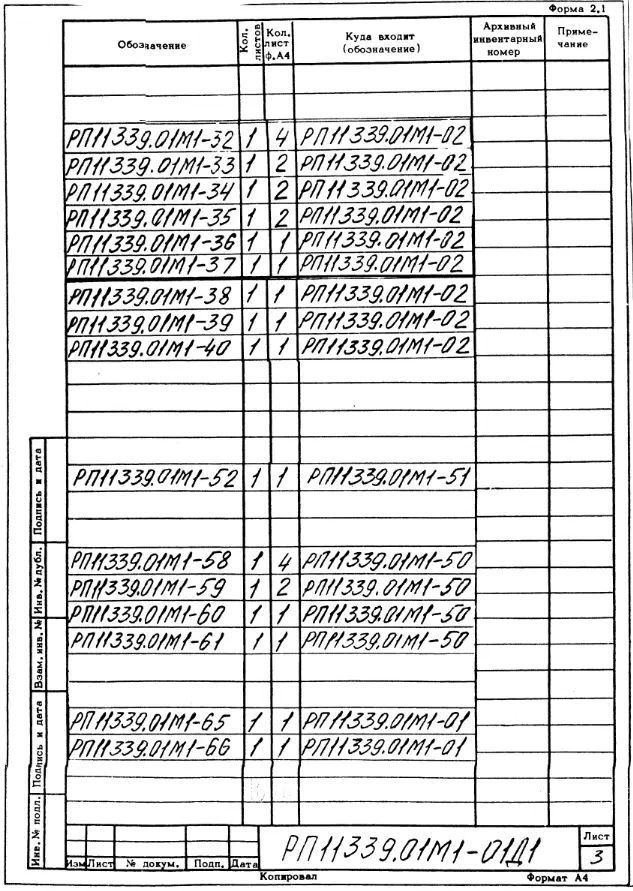 Форма 2.1
Обозначение Кол. листов Кол. лист ф.А4 Куда входит (обозначение) Архивный инвентарный номер Приме-чание
РП11339.01М1-32 1 4 РП11339.01М1-02
РП11339.01М1-33 1 2 РП11339.01М1-02
РП11339.01М1-34 1 2 РП11339.01М1-02
РП11339.01М1-35 1 2 РП11339.01М1-02
РП11339.01М1-36 1 1 РП11339.01М1-02
РП11339.01М1-37 1 1 РП11339.01М1-02
РП11339.01М1-38 1 1 РП11339.01М1-02
РП11339.01М1-39 1 1 РП11339.01М1-02
РП11339.01М1-40 1 1 РП11339.01М1-02
РП11339.01М1-52 1 1 РП11339.01М1-51
РП11339.01М1-58 1 4 РП11339.01М1-50
РП11339.01М1-59 1 2 РП11339.01М1-50
РП11339.01М1-60 1 1 РП11339.01М1-50
РП11339.01М1-61 1 1 РП11339.01М1-50
РП11339.01М1-65 1 1 РП11339.01М1-01
РП11339.01М1-66 1 1 РП11339.01М1-01
Подпись и дата
Инв. № дубл.
Взам. инв. №
Подпись и дата
Инв. № подл.
Изм Лист № докум. Подп. Дата
РП11339.01М1-01Д1
Лист
3
Копировал Формат А4